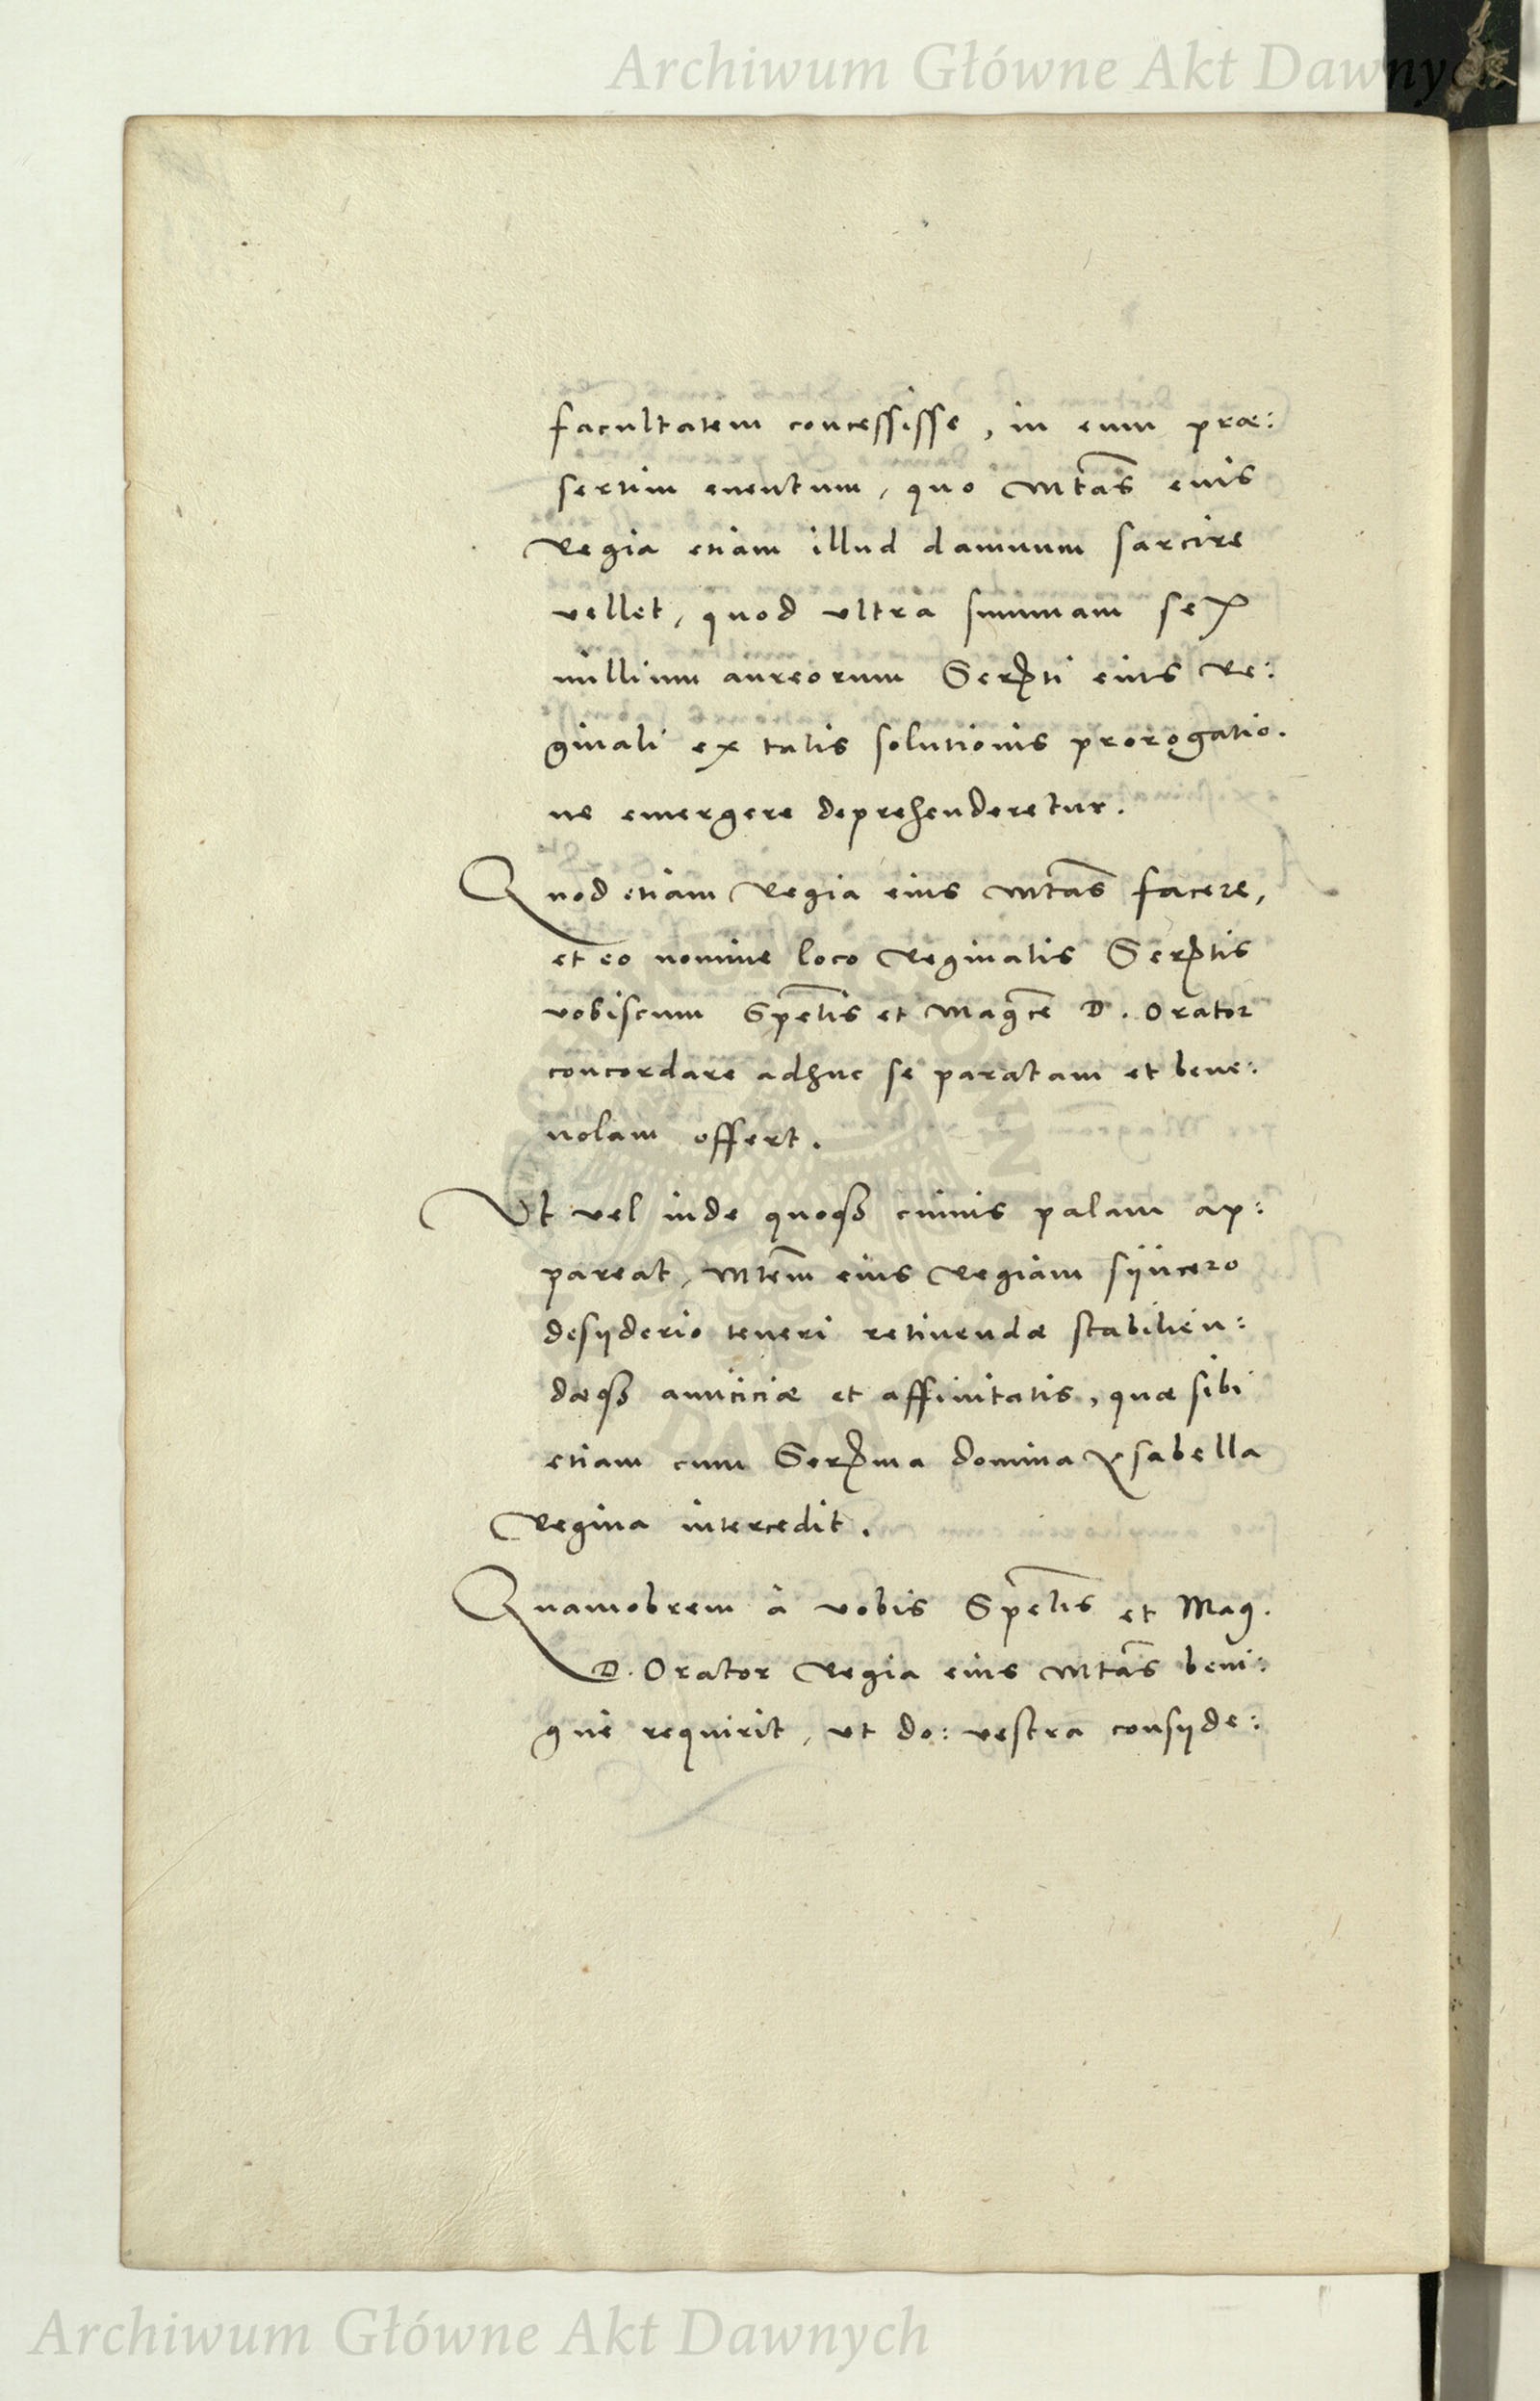 Archiwum Główne Akt Dawnych
facultatem concessisse, in eum præ:
sertim euentum, quo Mtas eius
Regia etiam illud damnum sarcire
vellet, quod vltra summam sex
millium aureorum Serti eius Re:
ginali ex talis solutionis prorogatio.
ne emergere deprehenderetur.
Quod etiam Regia eius Mtas facere,
et eo nomine loco Reginalis Sertis
vobiscum Spelis et Magce D. Orator
concordare adhuc se paratam et bene:
uolam offert.
Vt vel inde quoque cuiuis palam ap:
pareat, Mtem eius Regiam syncero
desyderio teneri retinendæ stabilien:
dæque amiciciæ et affinitatis, quæ sibi
etiam cum Serma domina Ysabella
Regina intercedit.
Quamobrem à vobis Spelis et Mag.
D. Orator Regia eius Mtas beni:
gnè requirit, vt do: vestra consyde:
Archiwum Główne Akt Dawnych